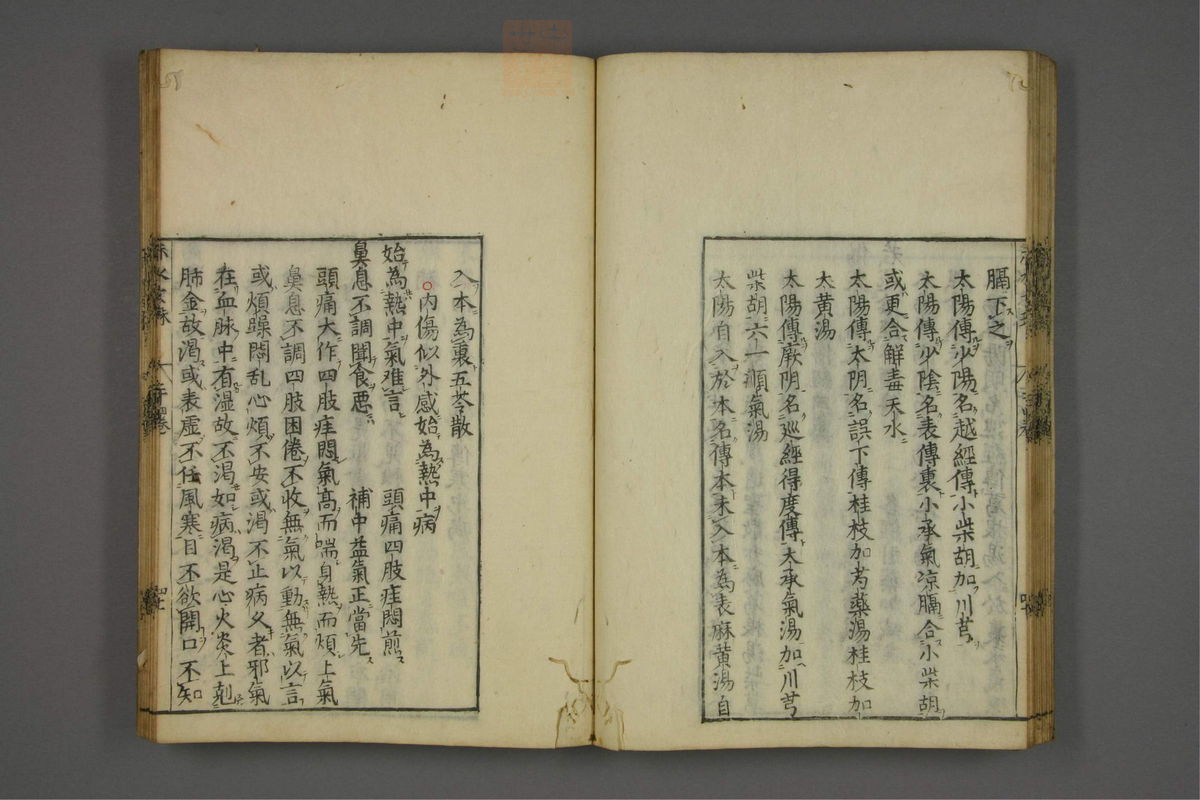 膈下之
太陽傳少陽名越經傳小柴胡加川芎
太陽傳少陰名表傳裏小承氣凉膈合小柴胡
或更合解毒天水
太陽傳太阴名誤下傳桂枝加芍藥湯桂枝加
大黄湯
太陽傳厥阴名巡經得度傳大承氣湯加川芎
柴胡六一順氣湯
太陽自入於本名傳本未入本為表麻黄湯自
入本為裏五苓散
○内傷似外感始為熱中病
始為熱中氣难言 頭痛四肢疰悶煎
鼻息不調聞食悪 補中益氣正當先
頭痛大作四肢疰悶氣髙而喘身熱而煩上氣
鼻息不調四肢困倦不收無氣以動無氣以言
或煩躁悶乱心煩不安或渇不止病久者邪氣
在血脉中有湿故不渇如病渇是心火炎上剋
肺金故渇或表虛不任風寒目不欲開口不知